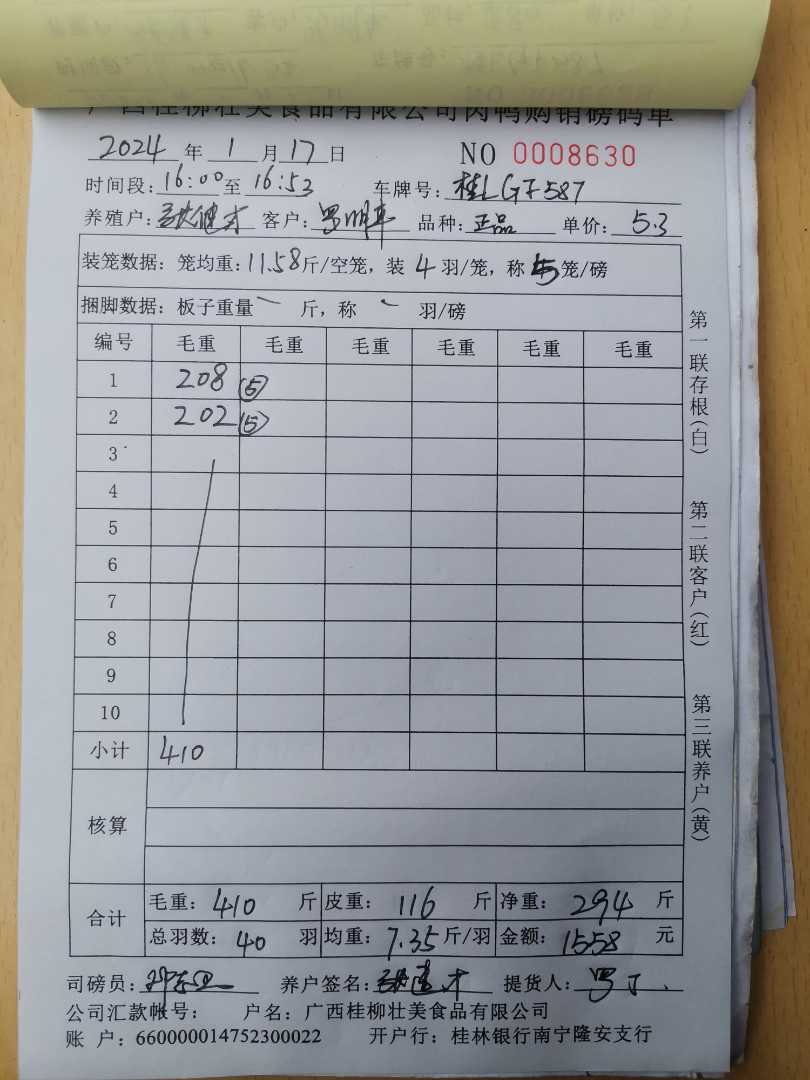 广西桂柳壮美食品有限公司肉鸭购销磅码单
2024 年 1 月 17 日 NO 0008630
时间段: 16:00 至 16:53 车牌号: 桂LGF587
养殖户: 客户: 罗明 品种: 正品 单价: 5.3
装笼数据: 笼均重: 11.58 斤/空笼, 装 4 羽/笼, 称 5 笼/磅
捆脚数据: 板子重量 斤, 称 羽/磅
编号 毛重 毛重 毛重 毛重 毛重 毛重
1 208 (5)
2 202 (5)
3
4
5
6
7
8
9
10
小计 410
核算
合计 毛重: 410 斤 皮重: 116 斤 净重: 294 斤
总羽数: 40 羽 均重: 7.35 斤/羽 金额: 1558 元
司磅员: 养户签名: 提货人: 罗
公司汇款帐号: 户名: 广西桂柳壮美食品有限公司
账 户: 660000014752300022 开户行: 桂林银行南宁隆安支行
第一联存根(白)
第二联客户(红)
第三联养户(黄)